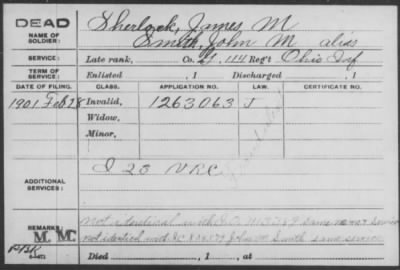 DEAD
NAME OF SOLDIER: Sherlock, James M
Smith, John M alias
SERVICE: Late rank, Co. 114 Reg't Ohio Inf
TERM OF SERVICE: Enlisted , 1 Discharged , 1
DATE OF FILING. CLASS. APPLICATION NO. LAW. CERTIFICATE NO.
1901 Feb 28 Invalid, 1263063 J
Widow,
Minor,
ADDITIONAL SERVICES: I 23 VRC
REMARKS: not identical with same name service
M. Mc. not identical with John M Smith same service
Died , 1 , at